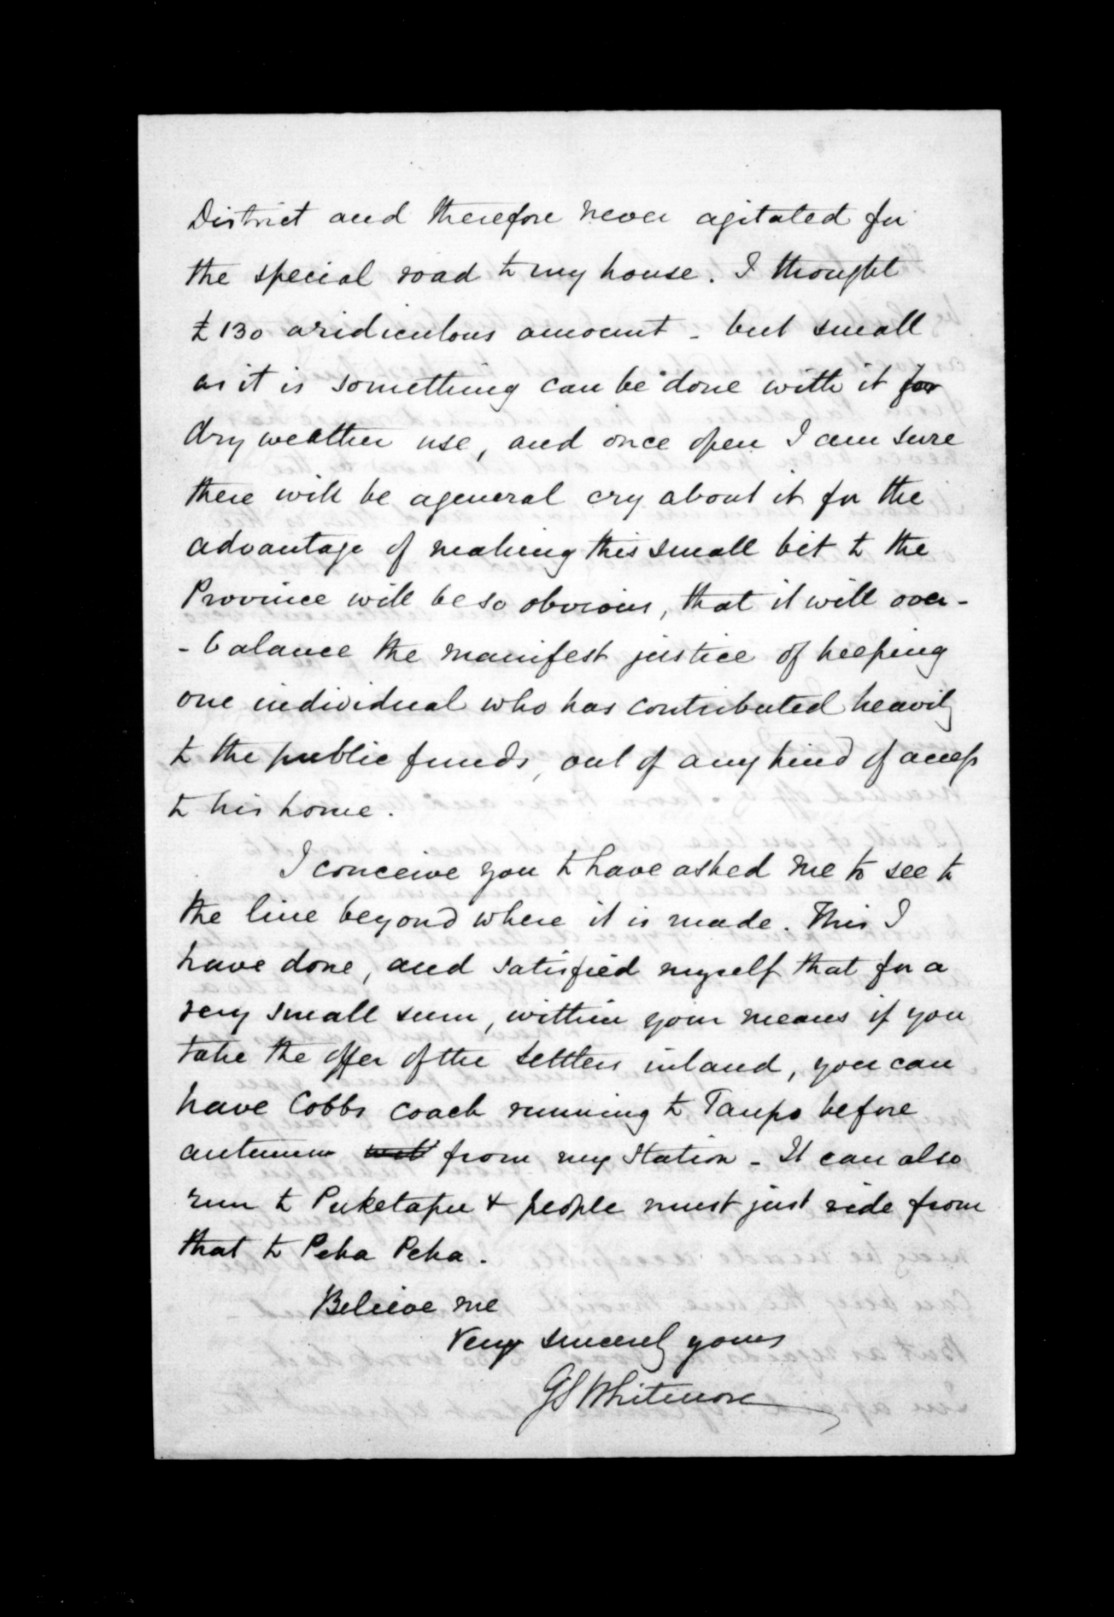 District and therefore never agitated for
the special road to my house. I thought
£130 a ridiculous amount - but small
as it is something can be done with it for
dry weather use, and once open I am sure
there will be a general cry about it for the
advantage of making this small bit to the
Province will be so obvious, that it will over-
-balance the manifest justice of keeping
one individual who has contributed heavily
to the public funds, out of any kind of access
to his home.
I conceive you to have asked me to see to
the line beyond where it is made. This I
have done, and satisfied myself that for a
very small sum, within your means if you
take the offer of the settlers inland, you can
have Cobbs coach running to Taupo before
autumn from my station - It can also
run to Puketapu & people must just ride from
that to Peka Peka.
Believe me
Very sincerely yours
GS Whitmore